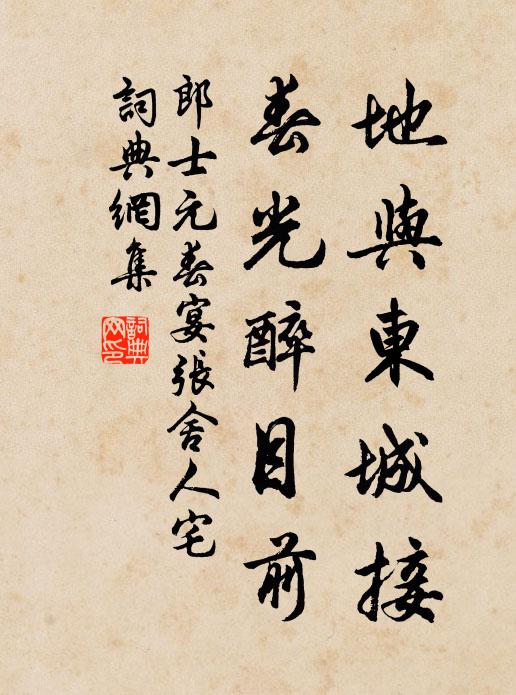 地與東城接
春光醉目前
郎士元春宴張舍人宅
詞典網集
詞典
网印